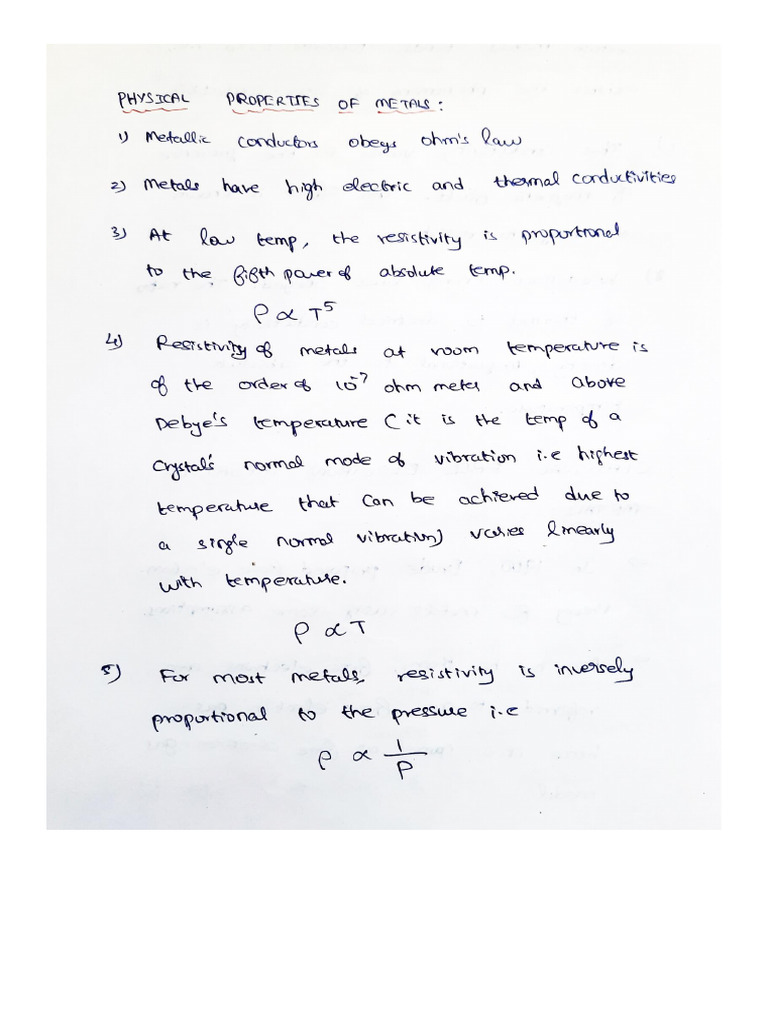 PHYSICAL PROPERTIES OF METALS:
1) Metallic conductors obeys ohm's law
2) Metals have high electric and thermal conductivities
3) At low temp, the resistivity is proportional
to the fifth power of absolute temp.
ρ ∝ T⁵
4) Resistivity of metals at room temperature is
of the order of 10⁻⁷ ohm meter and above
Debye's temperature ( it is the temp of a
crystal's normal mode of vibration i.e highest
temperature that can be achieved due to
a single normal vibration) varies linearly
with temperature.
ρ ∝ T
5) For most metals, resistivity is inversely
proportional to the pressure i.e
ρ ∝ 1/P